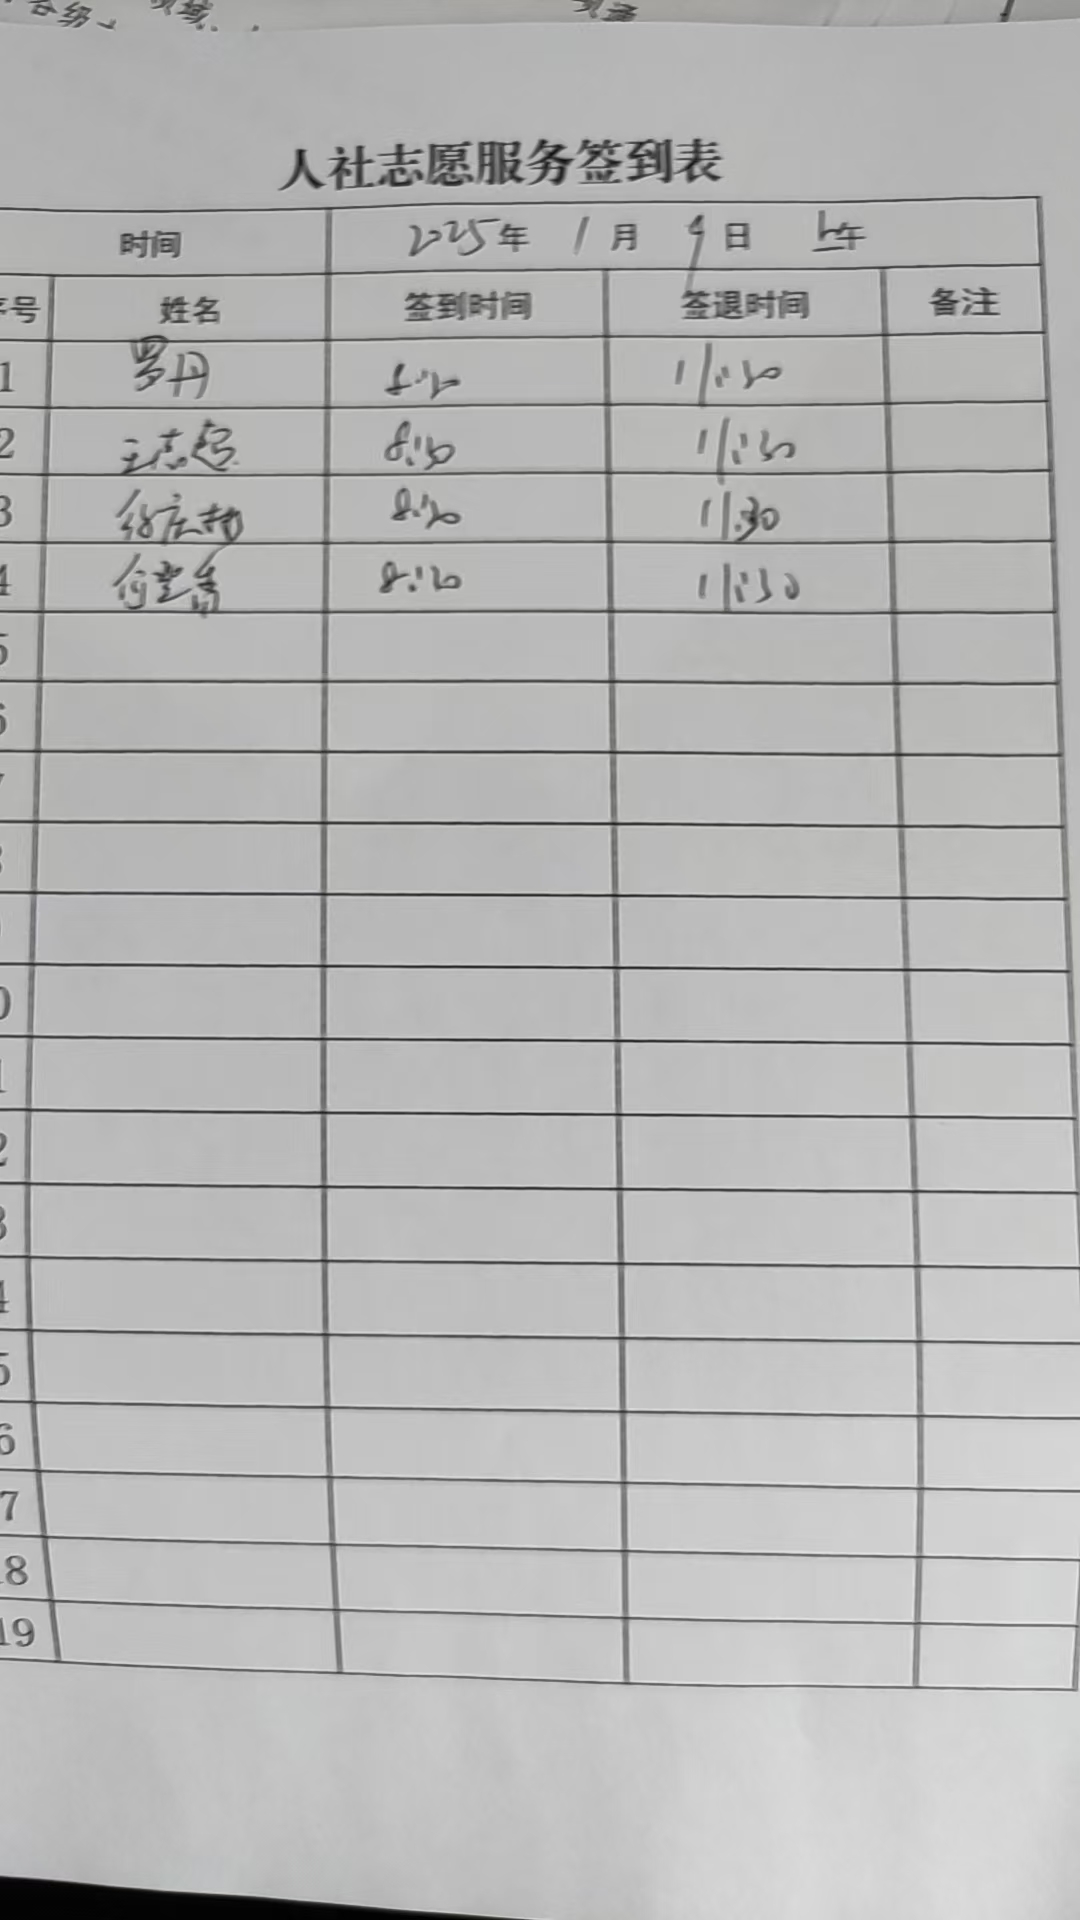 人社志愿服务签到表
时间 2025年 1月 9日 上午
序号 姓名 签到时间 签退时间 备注
1 罗丹 11:30
2 王志 8:30 11:30
3 8:30 11:30
4 何 8:30 11:30
5
6
7
8
9
10
11
12
13
14
15
16
17
18
19